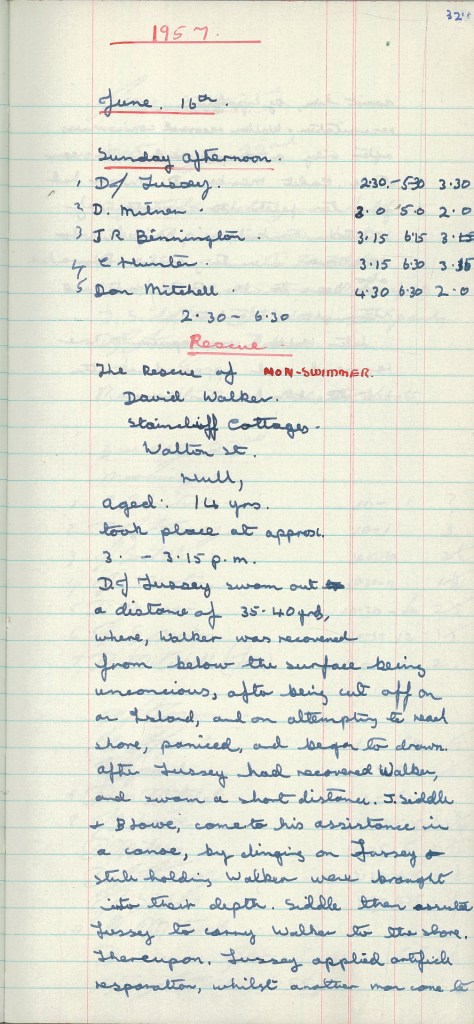 32
1957.
June. 16th.
Sunday afternoon.
1 D/ Tussey. 2.30.-5.30 3.30
2 D. Milner. 3.0 5.0 2.0
3 J R Bennington. 3.15 6.15 3.
4 C Hunter. 3.15 6.30 3.15
5 Don Mitchell. 4.30 6.30 2.0
2.30-6.30
Rescue
The Rescue of NON-SWIMMER.
David Walker.
Staincliff Cottages.
Walton St.
Hull,
aged: 14 yrs.
took place at approx.
3. - 3.15 p.m.
D/ Tussey swam out
a distance of 35-40 yrds,
where, Walker was recovered
from below the surface being
unconcious, after being cut off on
an Island, and on attempting to reach
shore, paniced, and began to drown.
After Tussey had recovered Walker,
and swam a short distance. J. Siddle
+ B Lowe, came to his assistance in
a canoe, by clinging on Tussey
still holding Walker were brought
into their depth. Siddle then
Tussey to carry Walker to the shore.
Thereupon, Tussey applied artific
resporation, whilst another man came to